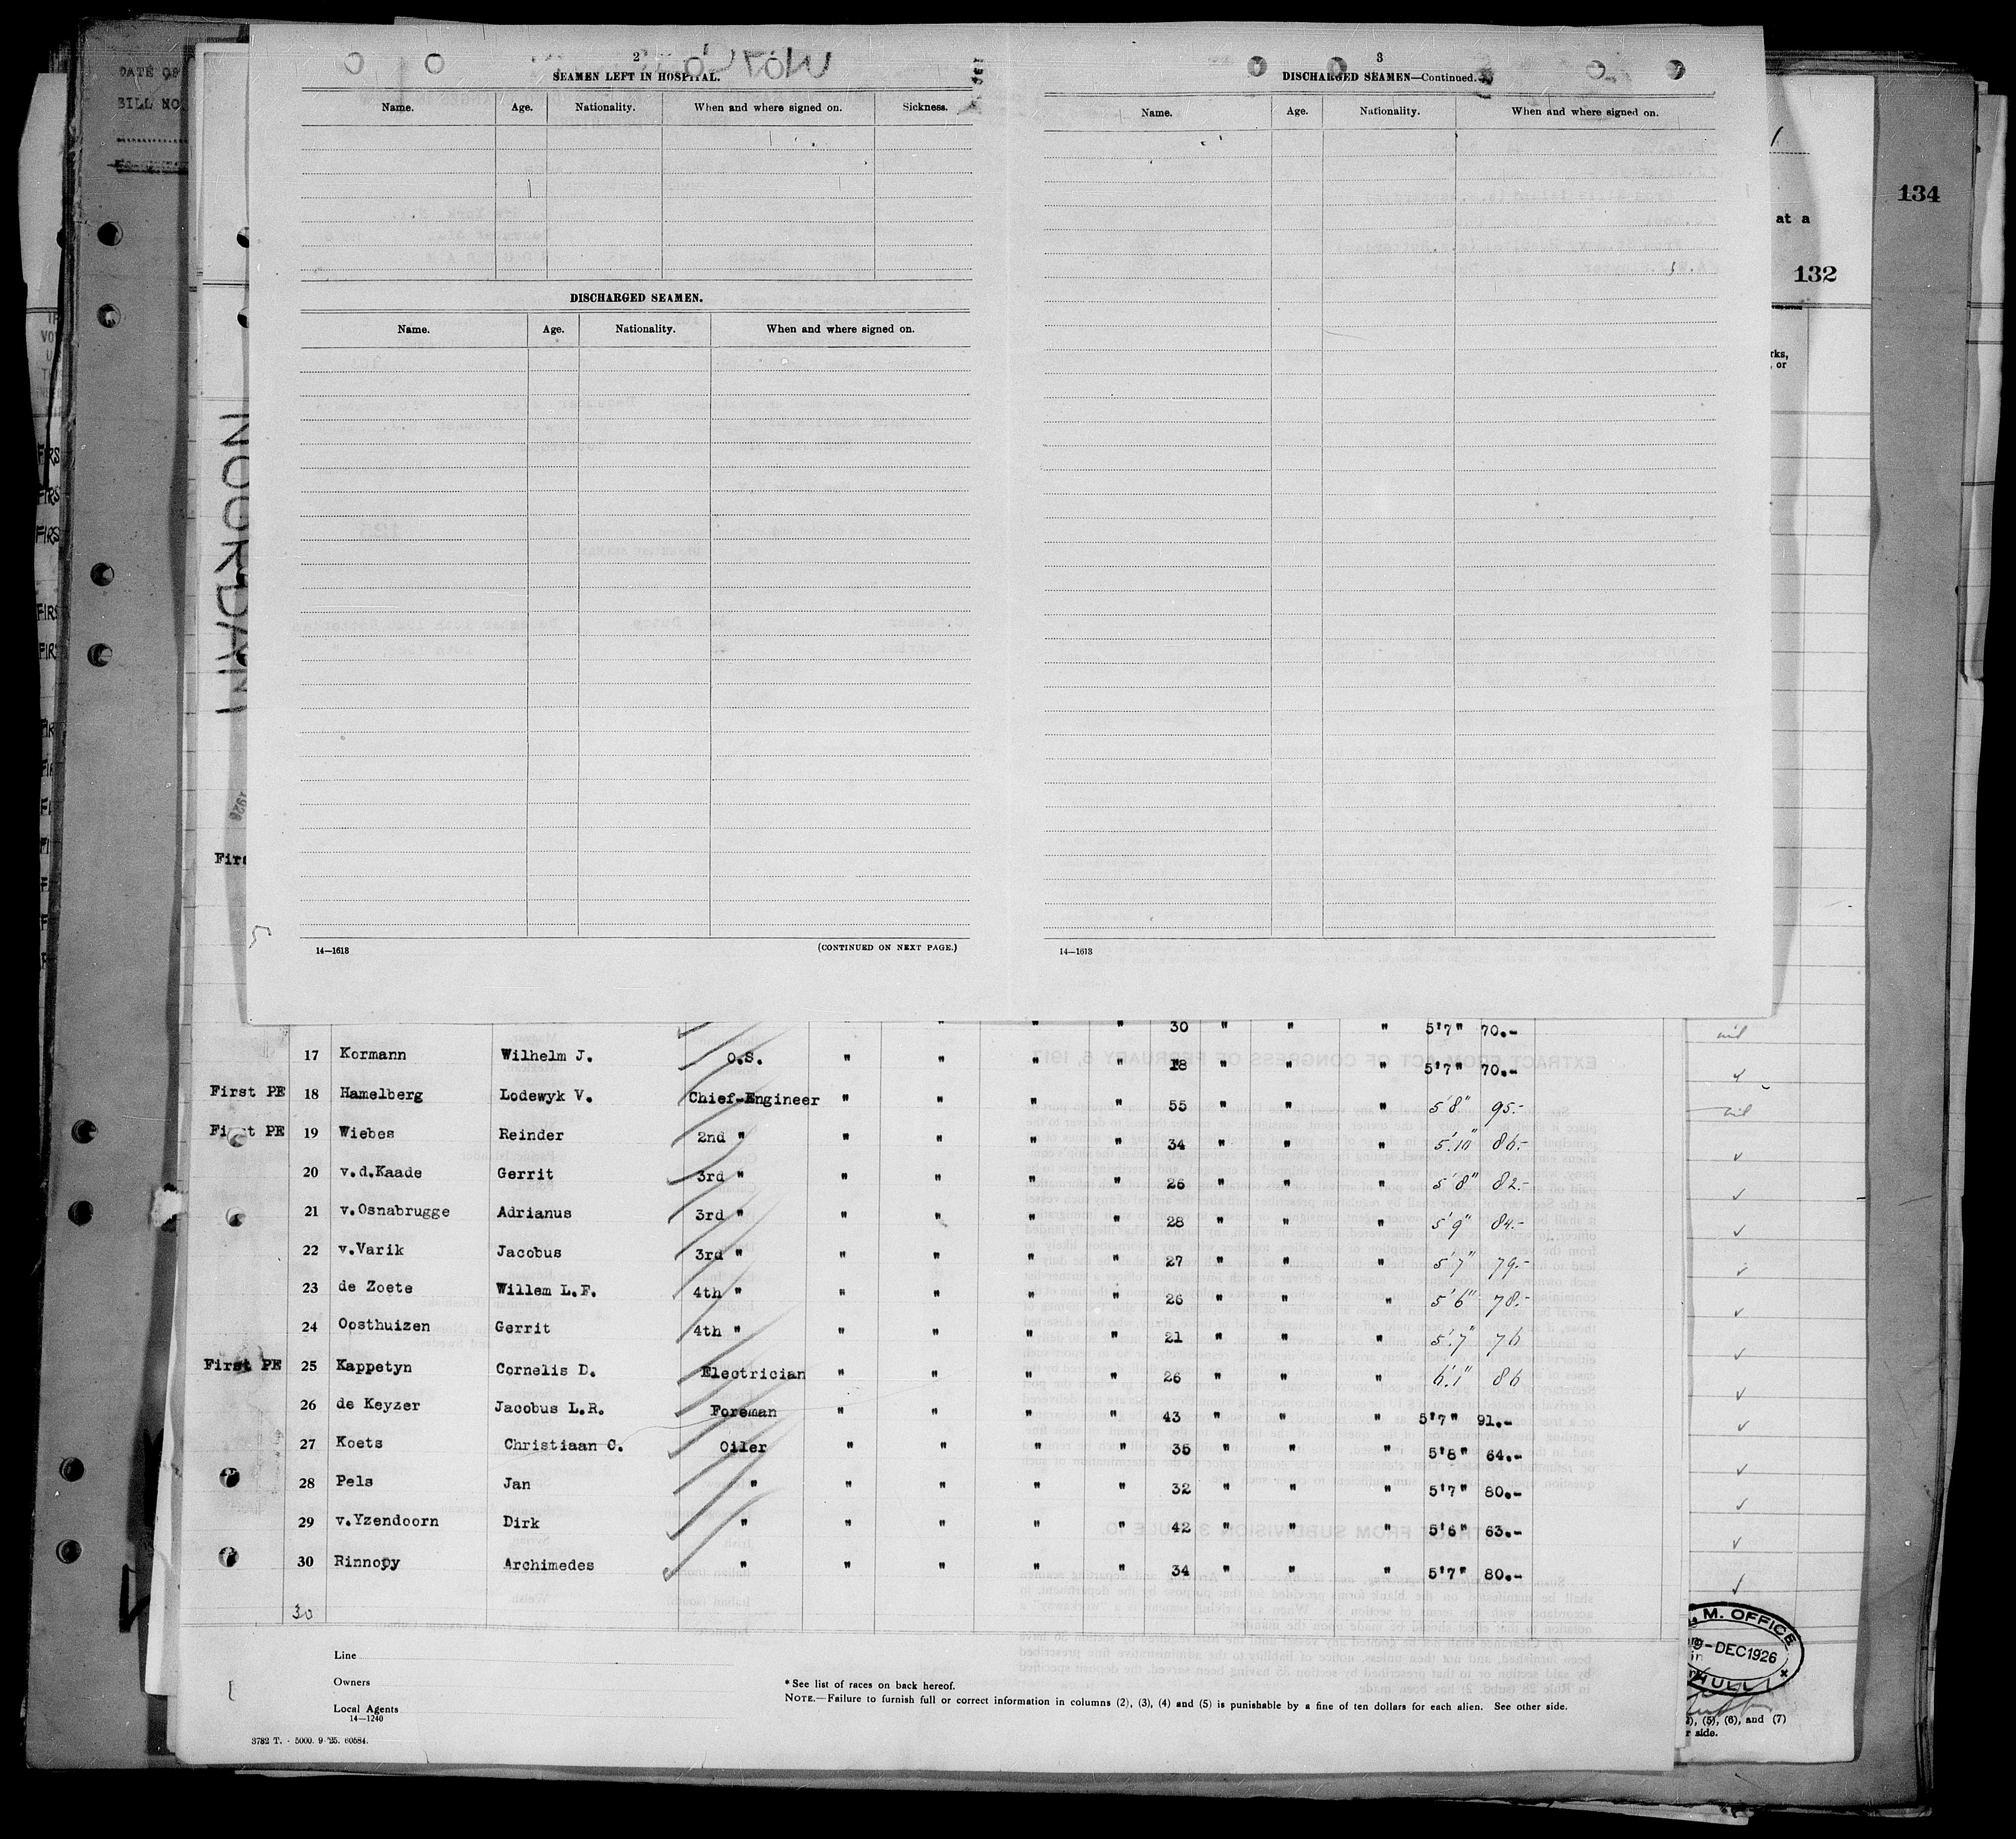 DATE OF
BILL NO
134
132
at a
2
SEAMEN LEFT IN HOSPITAL.
Name. Age. Nationality. When and where signed on. Sickness.
DISCHARGED SEAMEN.
Name. Age. Nationality. When and where signed on.
14—1613 (CONTINUED ON NEXT PAGE.)
3
DISCHARGED SEAMEN—Continued.
Name. Age. Nationality. When and where signed on.
14—1613
30 " " " 5'7" 70.-
17 Kormann Wilhelm J. O.S. " " " " 18 " " " 5'7" 70.-
First PE 18 Hamelberg Lodewyk V. Chief-Engineer " " " " 55 " " " 5'8" 95.-
First PE 19 Wiebes Reinder 2nd " " " " " 34 " " " 5'10" 86.-
20 v.d.Kaade Gerrit 3rd " " " " " 26 " " " 5'8" 82.-
21 v.Osnabrugge Adrianus 3rd " " " " " 28 " " " 5'9" 84.-
22 v.Varik Jacobus 3rd " " " " " 27 " " " 5'7" 79.-
23 de Zoete Willem L.F. 4th " " " " " 26 " " " 5'6" 78.-
24 Oosthuizen Gerrit 4th " " " " " 21 " " " 5'7" 76
First PE 25 Kappetyn Cornelis D. Electrician " " " " 26 " " " 6'1" 86
26 de Keyzer Jacobus L.R. Foreman " " " " 43 " " " 5'7" 91.-
27 Koets Christiaan C. Oiler " " " " 35 " " " 5'8" 64.-
28 Pels Jan " " " " " 32 " " " 5'7" 80.-
29 v.Yzendoorn Dirk " " " " " 42 " " " 5'6" 63.-
30 Rinnopy Archimedes " " " " " 34 " " " 5'7" 80.-
30
Line
Owners
Local Agents
14—1240
* See list of races on back hereof.
NOTE.—Failure to furnish full or correct information in columns (2), (3), (4) and (5) is punishable by a fine of ten dollars for each alien. See other side.
3782 T. - 5000. 9-'25. 60584.
M. OFFICE
9-DEC1926
HULL
(5), (6), and (7)
side.